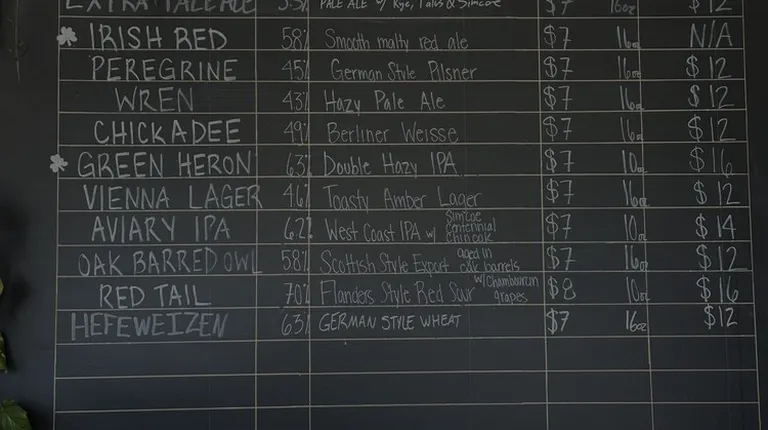 EXTRA PALE ALE 5.5% PALE ALE w/ Rye, Talus & Simcoe $7 16oz $12
IRISH RED 58% Smooth malty red ale $7 16oz N/A
PEREGRINE 45% German Style Pilsner $7 16oz $12
WREN 43% Hazy Pale Ale $7 16oz $12
CHICKADEE 49% Berliner Weisse $7 16oz $12
GREEN HERON 63% Double Hazy IPA $7 10oz $16
VIENNA LAGER 46% Toasty Amber Lager $7 16oz $12
AVIARY IPA 6.2% West Coast IPA w/ Simcoe centennial chinook $7 10oz $14
OAK BARRED OWL 58% Scottish Style Export aged in oak barrels $7 16oz $12
RED TAIL 70% Flanders Style Red Sour w/ Chambourcin grapes $8 10oz $16
HEFEWEIZEN 63% GERMAN STYLE WHEAT $7 16oz $12